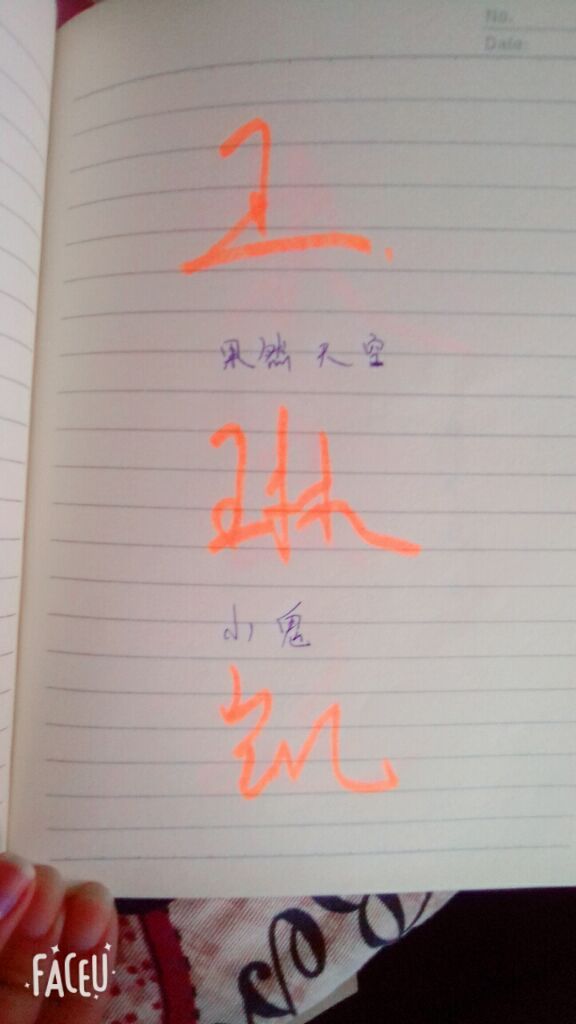 No.
Date
王.
果然 天空
琳
小鬼
凯
FACEU